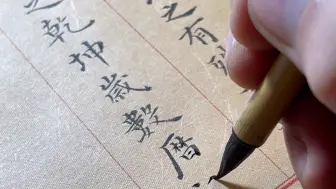 之有
之乾坤歲數曆